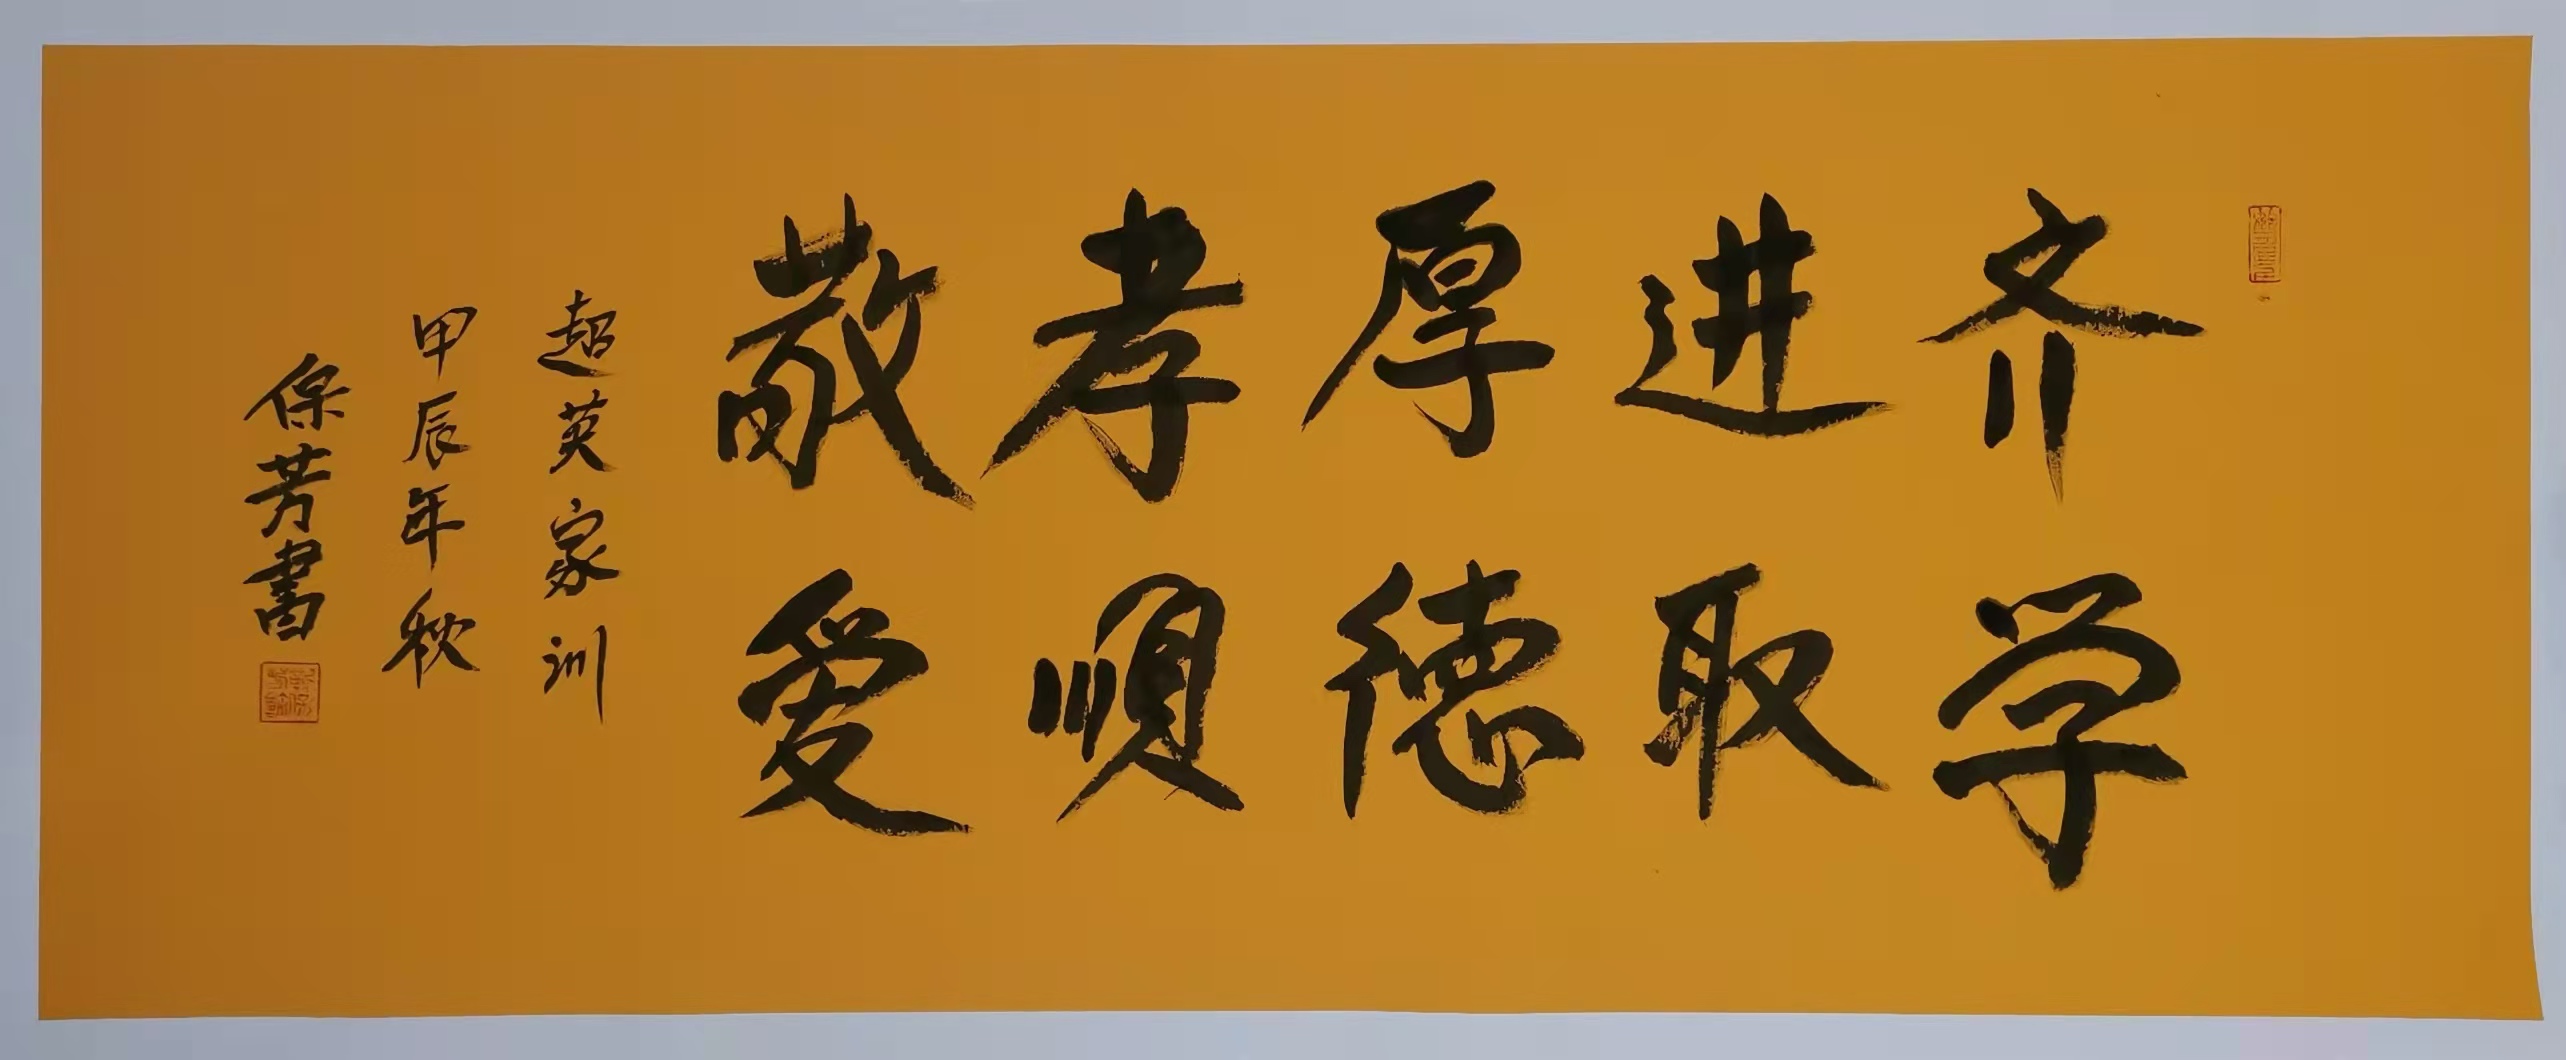 齐学
进取
厚德
孝顺
敬爱
超英家训
甲辰年秋
保芳書